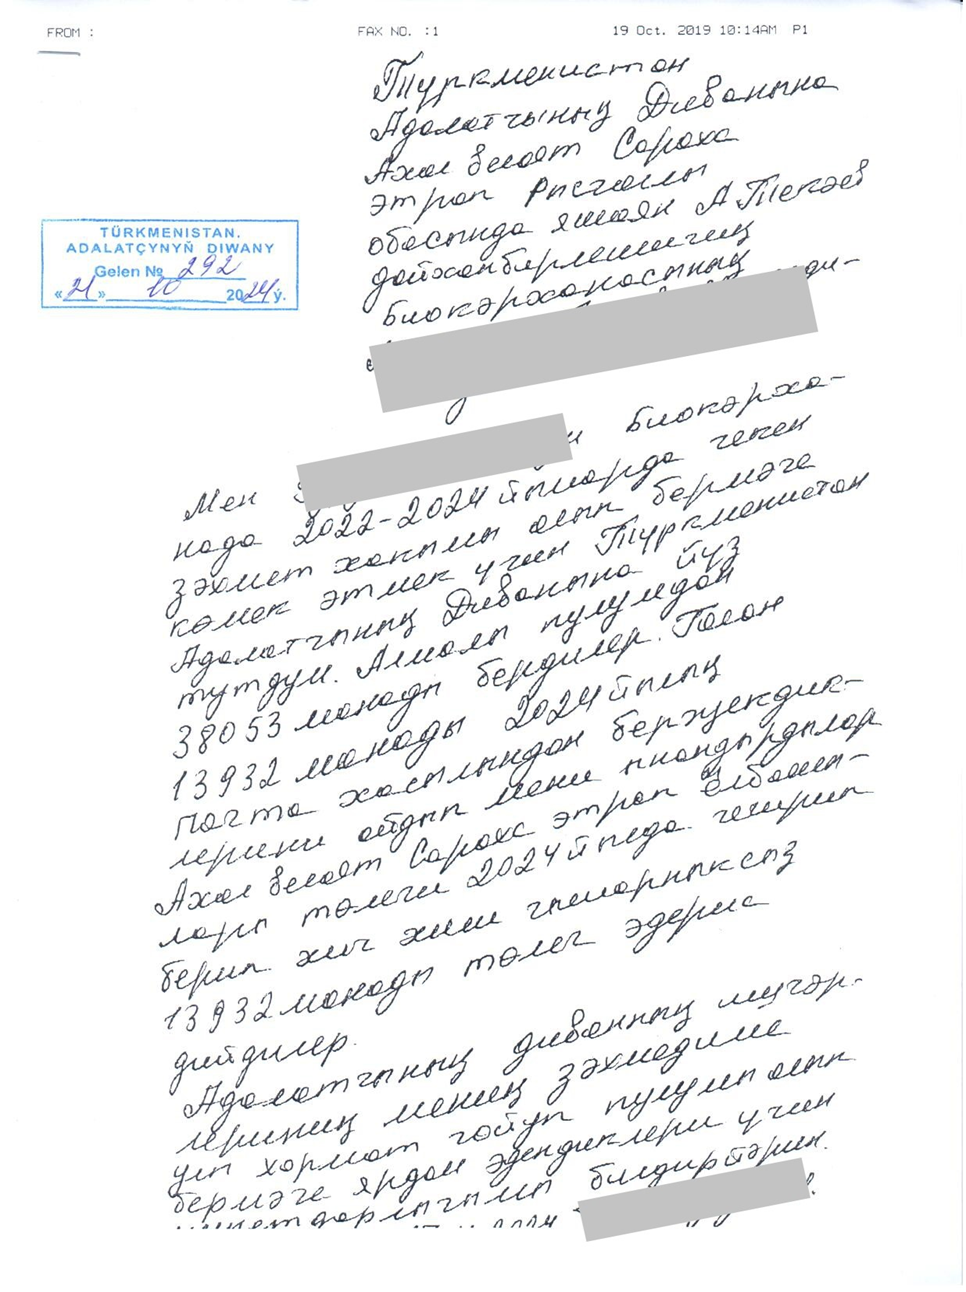 FROM :
FAX NO. :1
19 Oct. 2019 10:14AM P1
TÜRKMENISTAN.
ADALATÇYNYŇ DIWANY
Gelen № 292
«21» 10 2024 ý.
Туркменистан
Адалатчының Диванына
Ахал велаят Сарахс
этрап
обасында яшаян А Текәев
дайханбирлешигиң
биокәрханасының
Мен биокәрха-
нада 2022-2024 йылларда чекен
зәхмет хакымы алып бермәге
көмек этмек үчин Туркменистан
Адалатчының Диванына йүз
тутдум. Алмалы пулумдан
38053 манады бердилер. Галан
13932 манады 2024 йылың
пагта хасылындан бержекдик-
лерини айдып мени ынандырдылар
Ахал велаят Сарахс этрап Ёлбашы-
лары төлеги 2024 йылда гечирип
берип хич хили
13932 манады төлег эдерис
дийдилер.
Адалатчының диванның ишгәр-
лериниң мениң зәхмедиме
улы хормат гойуп пулумы алып
бермәге ярдам эдендиклери үчин
билдирйәрин.